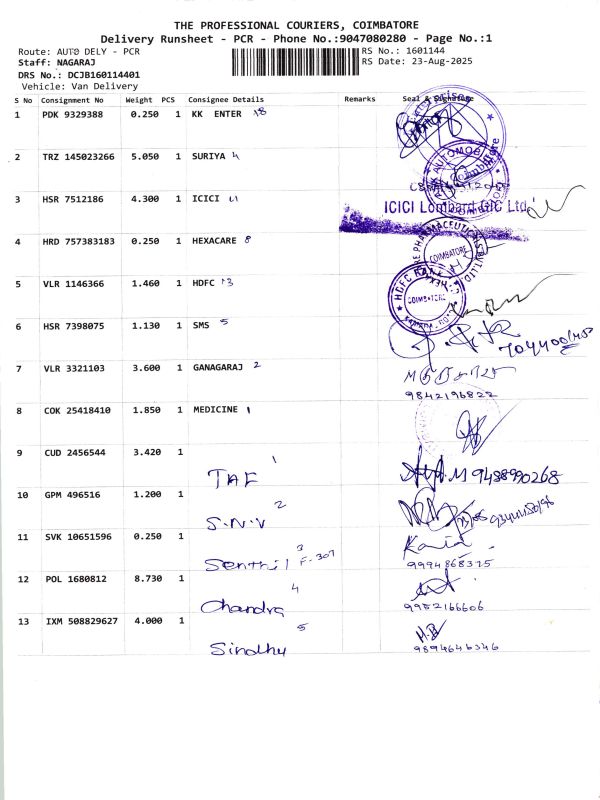 THE PROFESSIONAL COURIERS, COIMBATORE
Delivery Runsheet - PCR - Phone No.:9047080280 - Page No.:1
Route: AUTO DELY - PCR
RS No.: 1601144
Staff: NAGARAJ
RS Date: 23-Aug-2025
DRS No.: DCJB160114401
Vehicle: Van Delivery
S No Consignment No Weight PCS Consignee Details Remarks Seal & Signature
1 PDK 9329388 0.250 1 KK ENTER 18
2 TRZ 145023266 5.050 1 SURIYA 4
3 HSR 7512186 4.300 1 ICICI
ICICI Lombard GIC Ltd.
4 HRD 757383183 0.250 1 HEXACARE 8
COIMBATORE
5 VLR 1146366 1.460 1 HDFC 13
HDFC BANK
COIMBATORE
6 HSR 7398075 1.130 1 SMS 5
7 VLR 3321103 3.600 1 GANAGARAJ 2
9842196822
8 COK 25418410 1.850 1 MEDICINE 1
9 CUD 2456544 3.420 1 TAF 1
9488990268
10 GPM 496516 1.200 1 S.N.V 2
11 SVK 10651596 0.250 1 Senthil F-307 3
9994868315
12 POL 1680812 8.730 1 Chandra 4
9952166606
13 IXM 508829627 4.000 1 Sindhu 5
9894646346